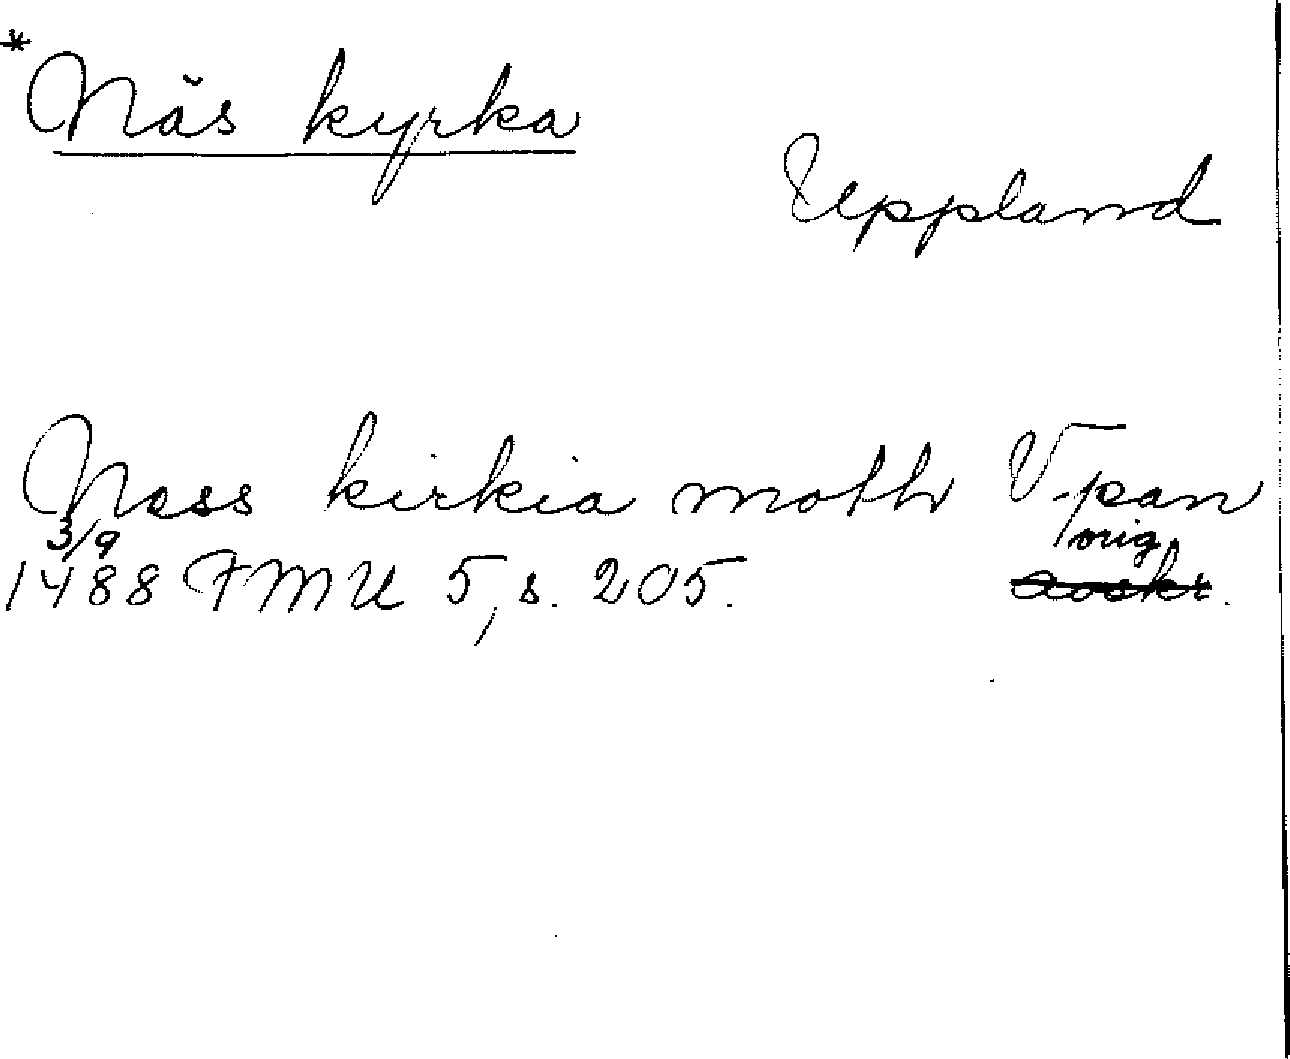 *Näs kyrka
Uppland
Næss kirkia moth Vpan
3/9 orig
1488 FMU 5, s. 205. avskr.